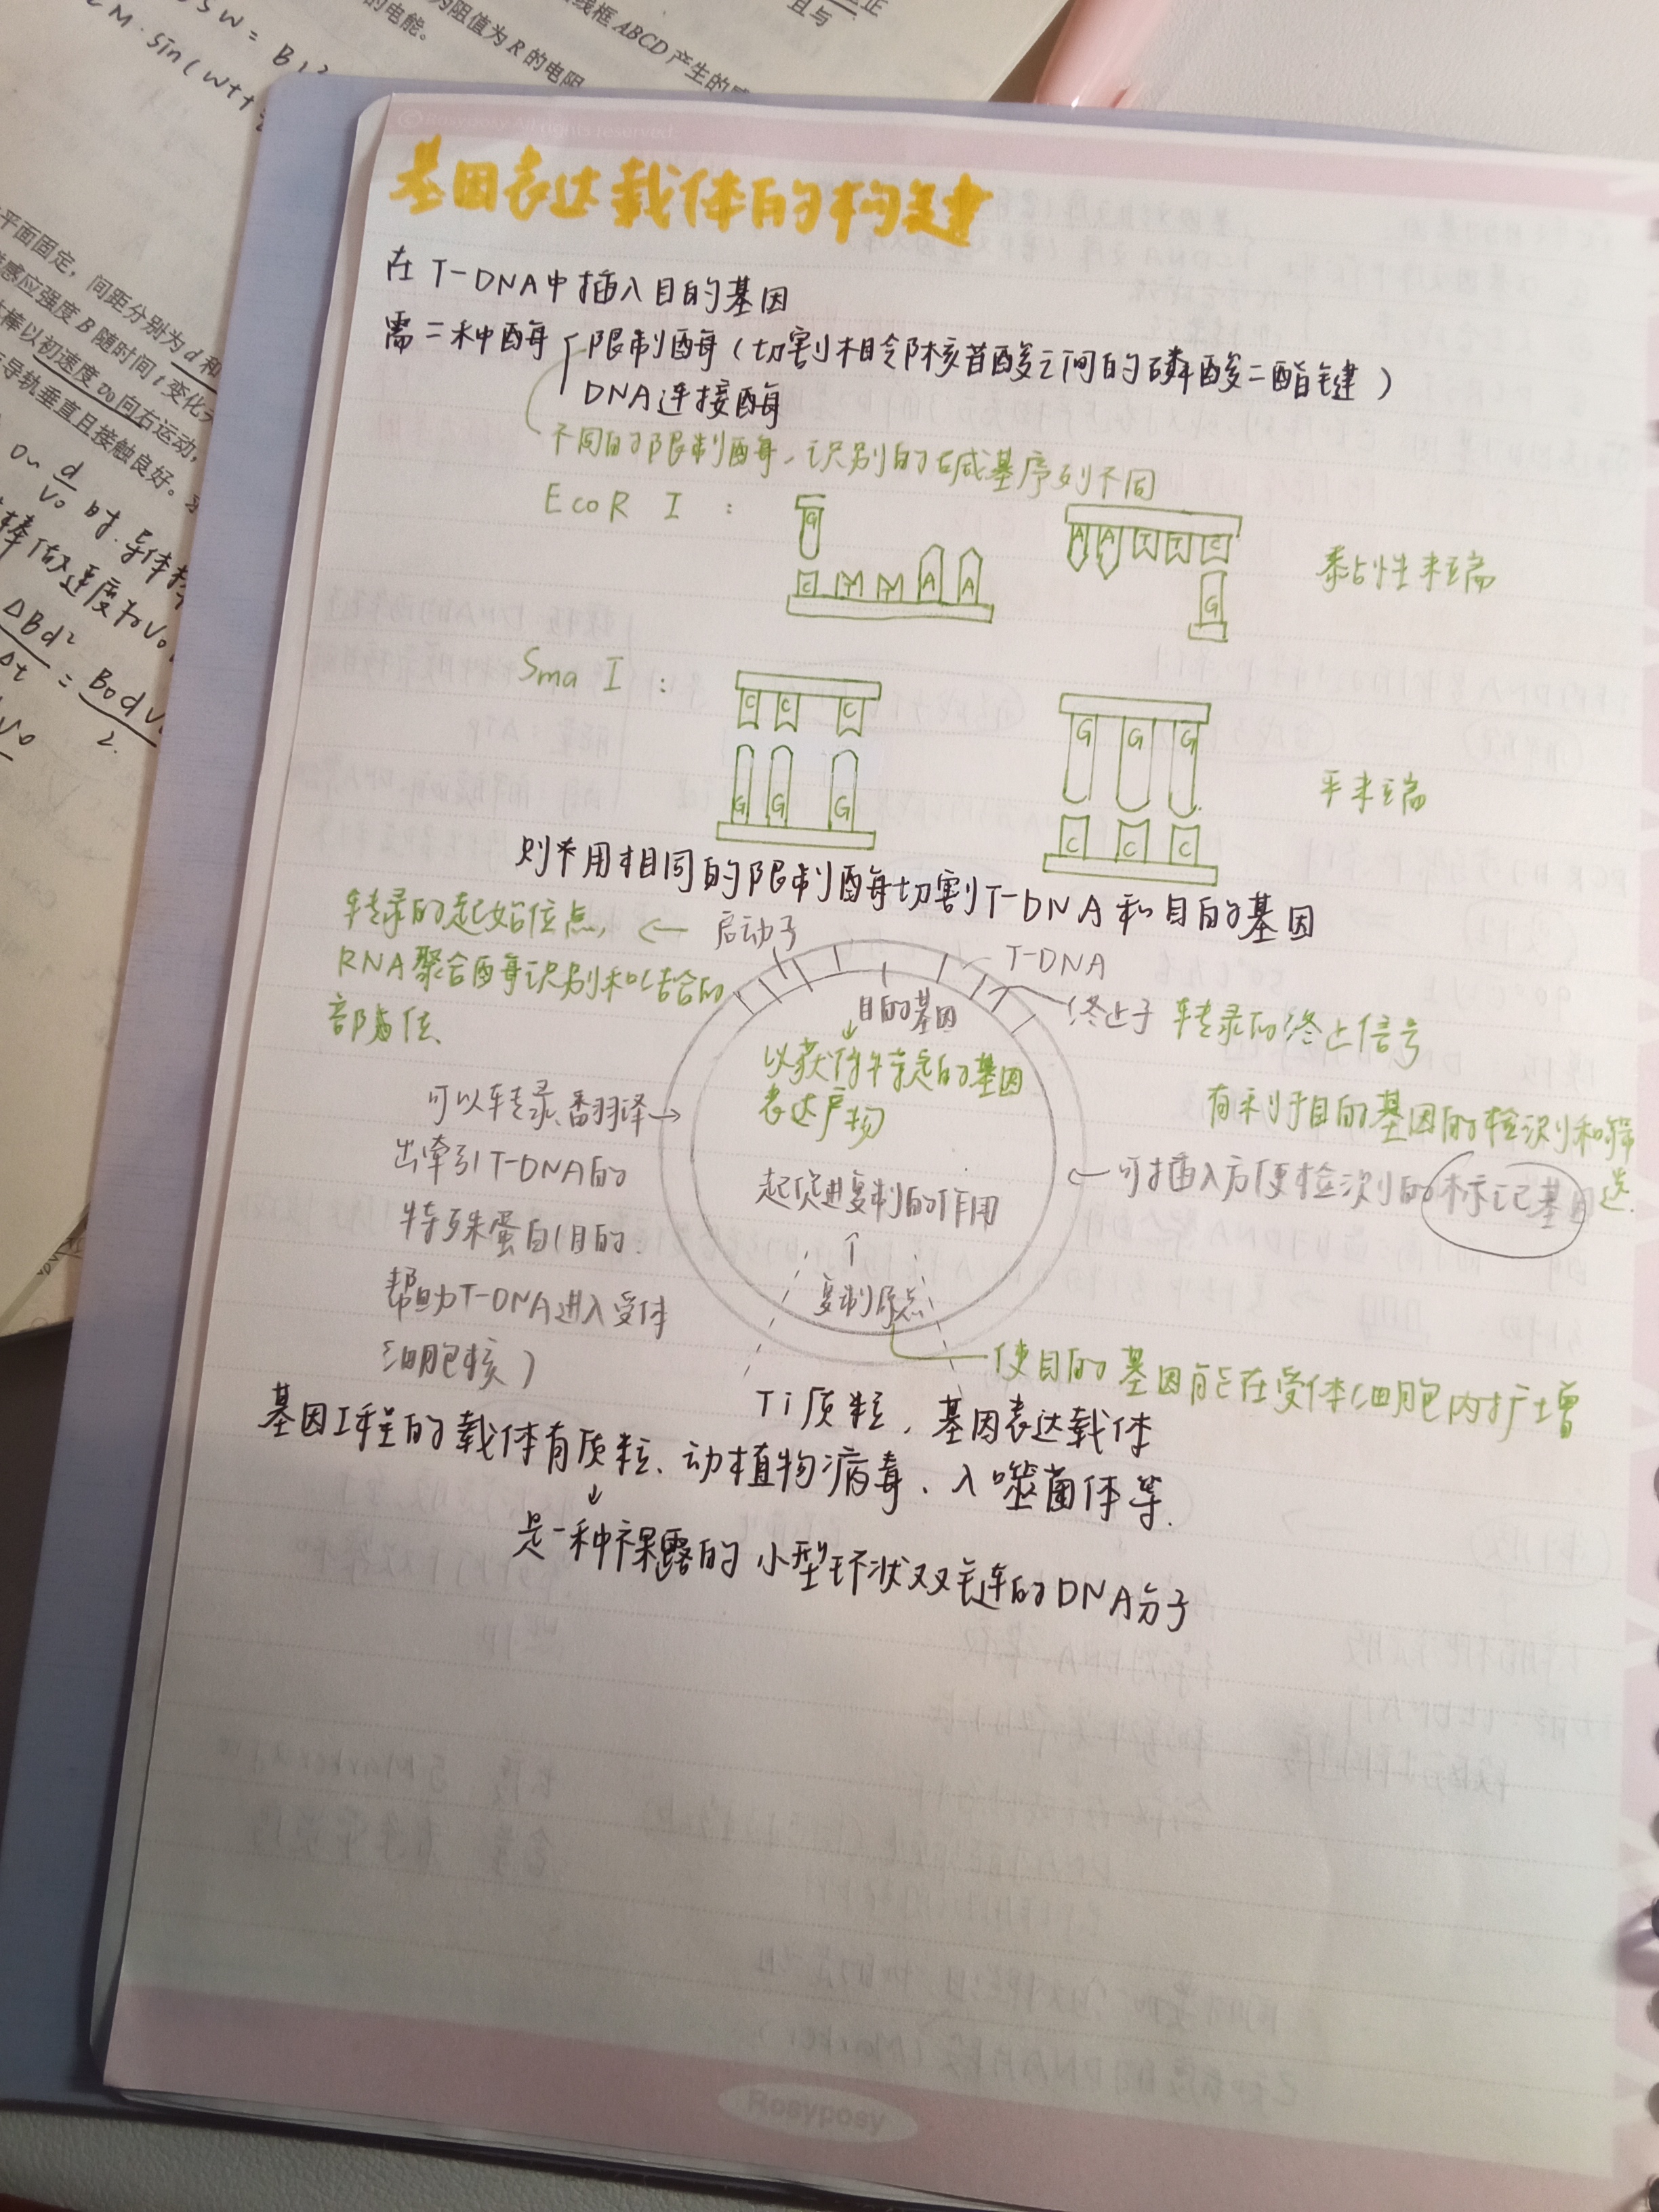 SW = B l²
εM·sin(wt+
线框ABCD产生的
为阻值为R的电阻
的电能。
且与
平面固定，间距分别为d和
感应强度B随时间t变化
棒以初速度v₀向右运动，
导轨垂直且接触良好。
0~d/v₀时.导体棒
棒做速度为v₀
ΔBd²/Δt = B₀dv/2.
© Rosyposy All rights reserved.
基因表达载体的构建
在T-DNA中插入目的基因
需二种酶 限制酶(切割相邻核苷酸之间的磷酸二酯键)
DNA连接酶
不同的限制酶,识别的碱基序列不同
EcoR I :
G
C T T A A
A A T T C
G
黏性末端
Sma I :
C C C
G G G
G G G
C C C
平末端
则采用相同的限制酶切割T-DNA和目的基因
转录的起始位点, ← 启动子
RNA聚合酶识别和结合的
部位
T-DNA
终止子 转录的终止信号
目的基因
↓
以获得特定的基因
表达产物
可以转录、翻译→
出牵引T-DNA的
特殊蛋白(目的:
帮助T-DNA进入受体
细胞核)
有利于目的基因的检识和筛
选.
←可插入方便检测的标记基因
起促进复制的作用
↑
复制原点
使目的基因能在受体细胞内扩增
Ti质粒, 基因表达载体
基因工程的载体有质粒、动植物病毒、λ噬菌体等.
↓
是一种裸露的小型环状双链的DNA分子
Rosyposy